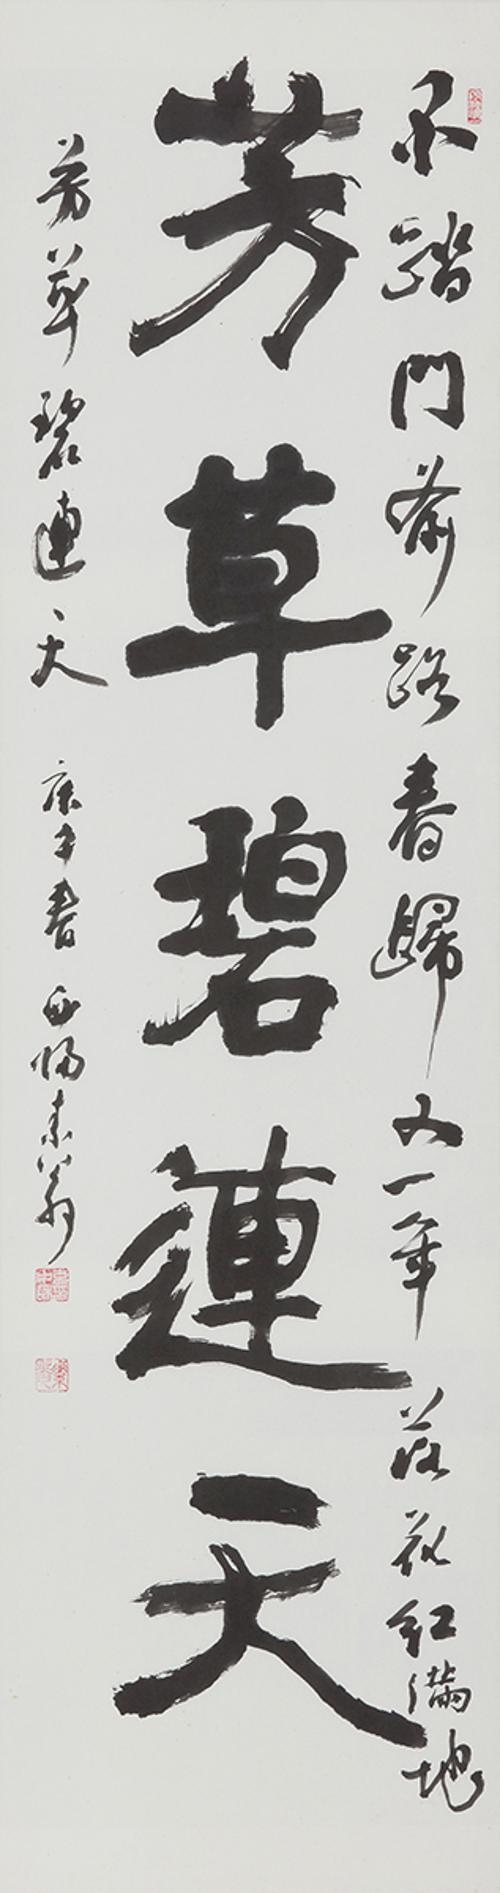 不踏門前路春歸又一年落花紅滿地
芳草碧連天
芳草碧連天 庚子春